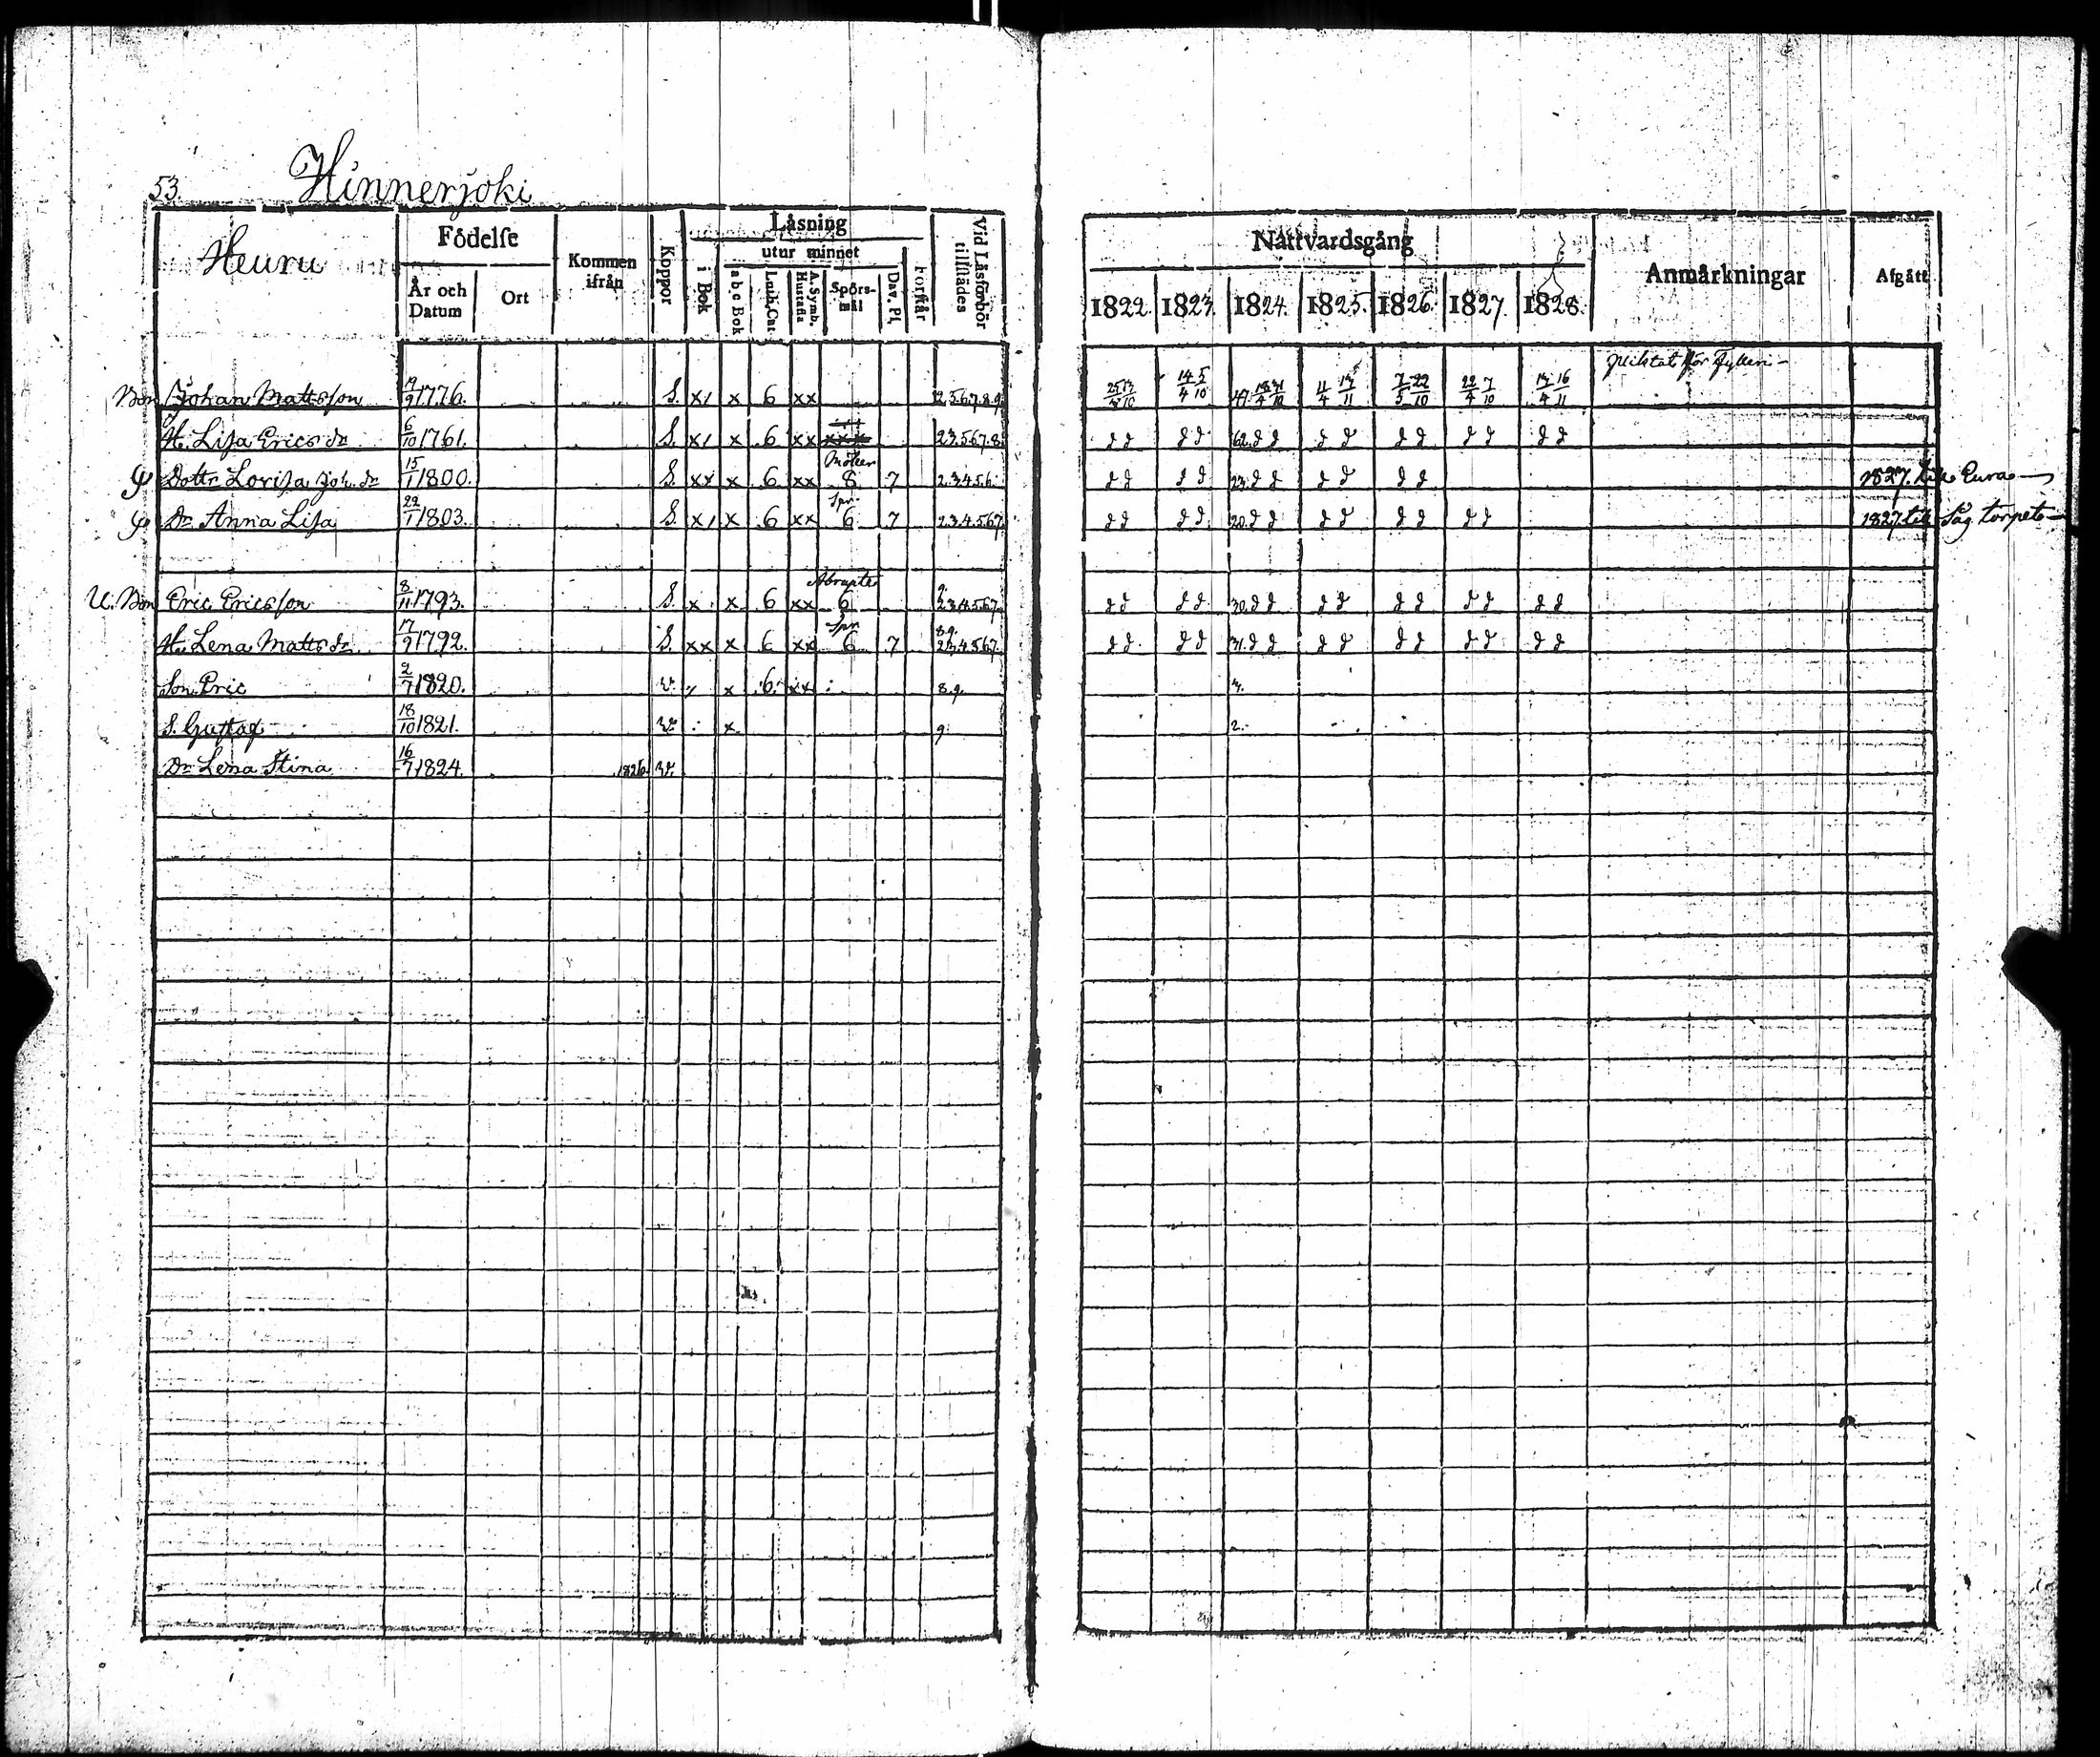 53.
Hinnerjoki
Heuru
Födelse
År och Datum
Ort
Kommen ifrån
Koppor
Läsning
i Bok
utur minnet
abc Bok
Luth. Cat.
A. Symb. Hustafla
Spörs-mål
Dav. Pf.
Förstår
Vid Läsförhör tillstädes
Nattvardsgång
1822. 1823. 1824. 1825. 1826. 1827. 1828.
Anmärkningar
Afgått
Bon Johan Mattsson 19/9 1776. S. x x 6 xx 2.5.6.7.8.9. 25/4 13/10 14/4 5/10 47. 18/4 31/10 4/4 13/11 7/5 22/10 22/4 7/10 13/4 16/11 för fylleri
H. Lisa Erics dr 6/10 1761. S. x x 6 xx 2.3.5.6.7.8. d d d d 62. d d d d d d d d d d
Dottr Lovisa Joh. dr 15/1 1800. S. xx x 6 xx Möker 8 7 2.3.4.5.6. d d d d 23. d d d d d d 1827. till Eura
Dr Anna Lisa 22/1 1803. S. x x 6 xx Spr. 6 7 2.3.4.5.6.7. d d d d 20. d d d d d d d d 1827 till Såg torpet
U. Bon Eric Ericsson 8/11 1793. S. x x 6 xx Abrupte 6 9. 2.3.4.5.6.7. d d d d 30. d d d d d d d d d d
H. Lena Matts dr 17/9 1792. S. xx x 6 xx Spr 6 7 8.9. 2.3.4.5.6.7. d d d d 31. d d d d d d d d d d
Son Eric 2/7 1820. v. x 6. xx 8.9. 3.
S. Gustaf 18/10 1821. v. x 9. 2.
Dr Lena Stina 16/7 1824. 1826. v.